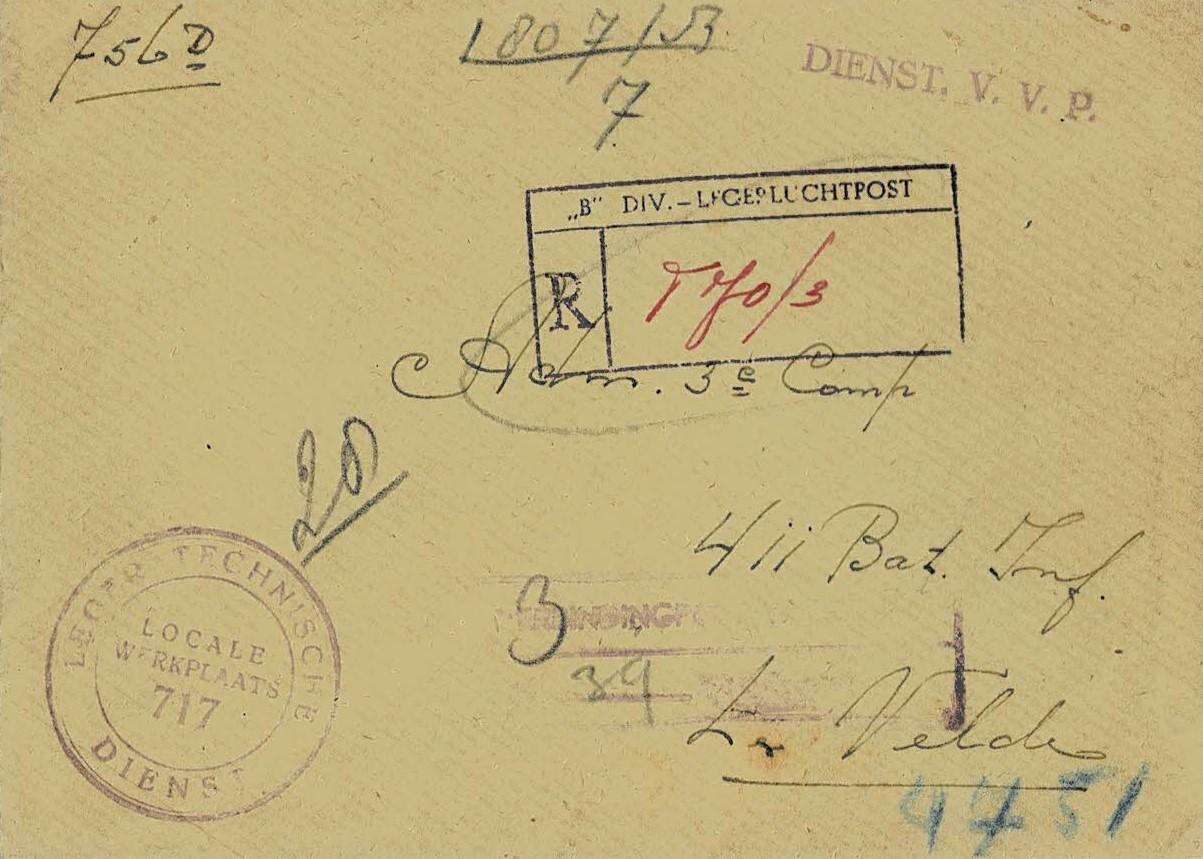 756 D
1807/B
7
DIENST. V. V. P.
„B” DIV.-LEGERLUCHTPOST
R
Adm. 3e Comp
20
411 Bat. Inf.
LEGER TECHNISCHE
LOCALE
WERKPLAATS
717
DIENST
3
39
te Velde
4451